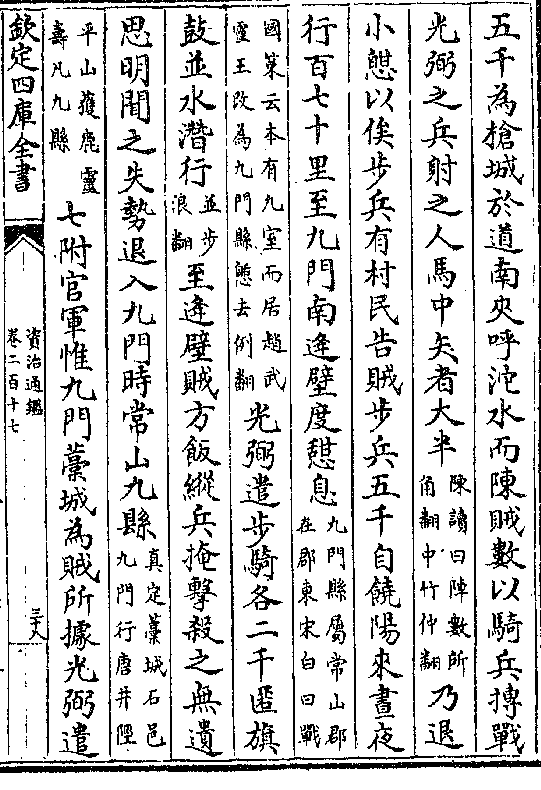 五千為槍城於道南夾呼沱水而陳賊數以騎兵摶戰
光弼之兵射之人馬中矢者大半陳讀曰陣數所角翻中竹仲翻乃退
小憇以俟步兵有村民告賊步兵五千自饒陽來晝夜
行百七十里至九門南逄壁度憇息九門縣屬常山郡在郡東宋白曰戰
國策云本有九室而居趙武靈王改為九門縣憇去例翻光弼遣步騎各二千匿旗
鼓並水潛行並步浪翻至逄壁賊方飯縱兵掩擊殺之無遺
思明聞之失勢退入九門時常山九縣真定藁城石邑九門行唐井陘
平山獲鹿靈壽凡九縣七附官軍惟九門藁城為賊所據光弼遣
欽定四庫全書
資治通鑑
卷二百十七
三十八